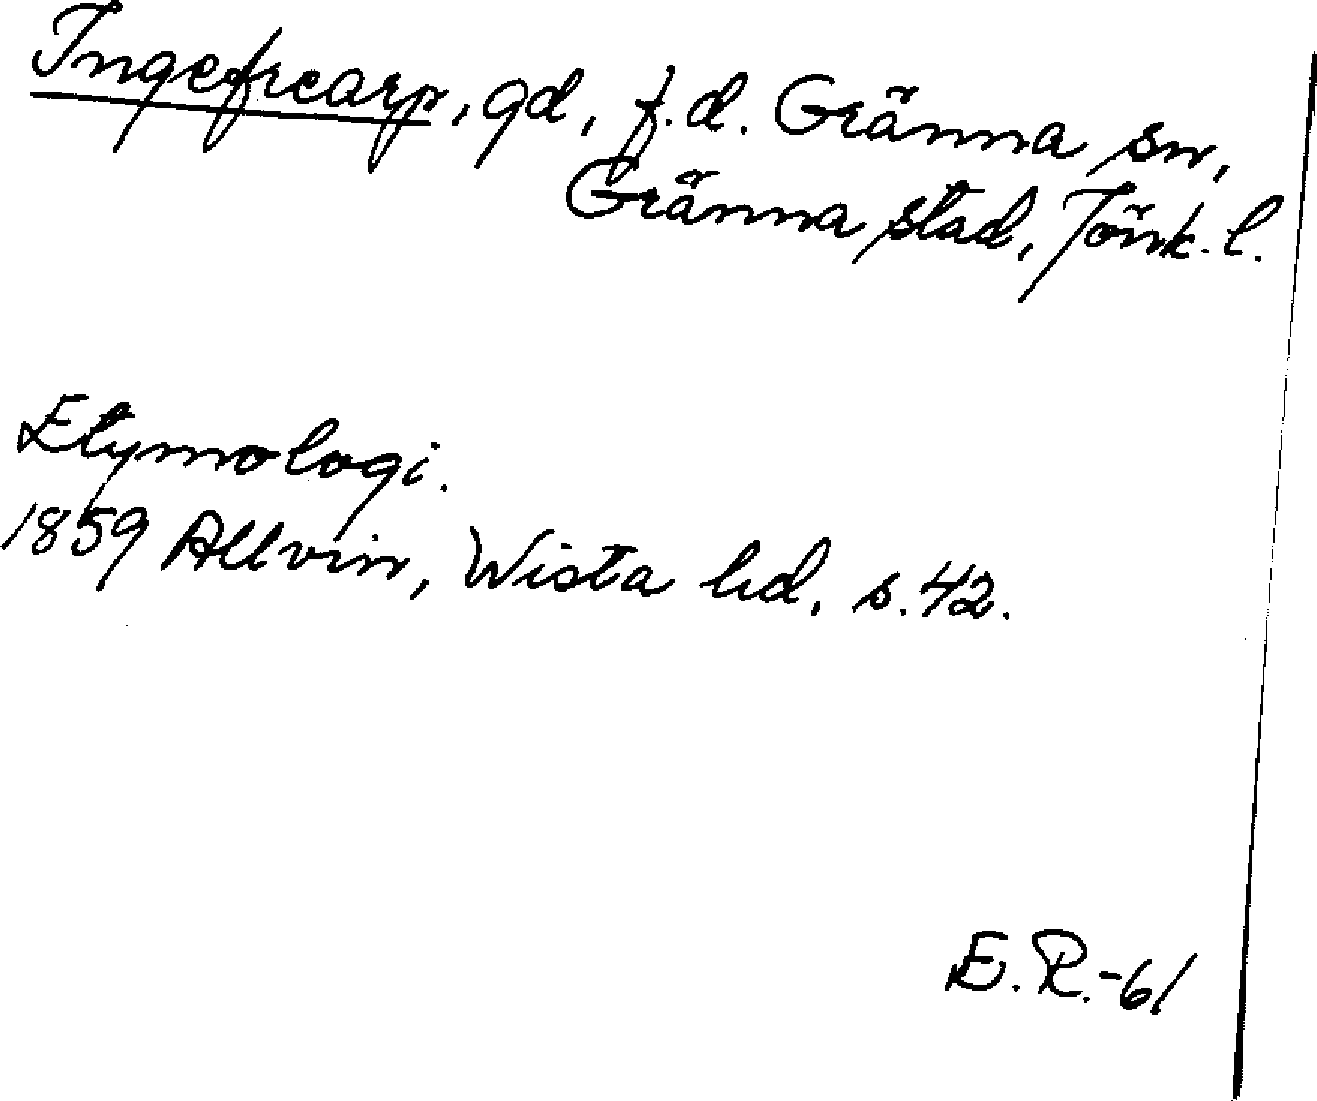 Ingefrearp, gd, f.d. Gränna sn,
Gränna stad, Jönk. l.
Etymologi.
1859 Allvin, Wista hd, s. 42.
E. R. -61